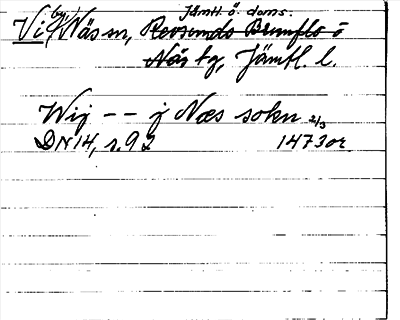 Jämtl. ö. doms.
Vi (by) Näs sn, Revsunds Brunflo o
Näs tg, Jämtl. l.
Wij -- j Næs sokn 2/3
DN 14, s. 92 1473 or.